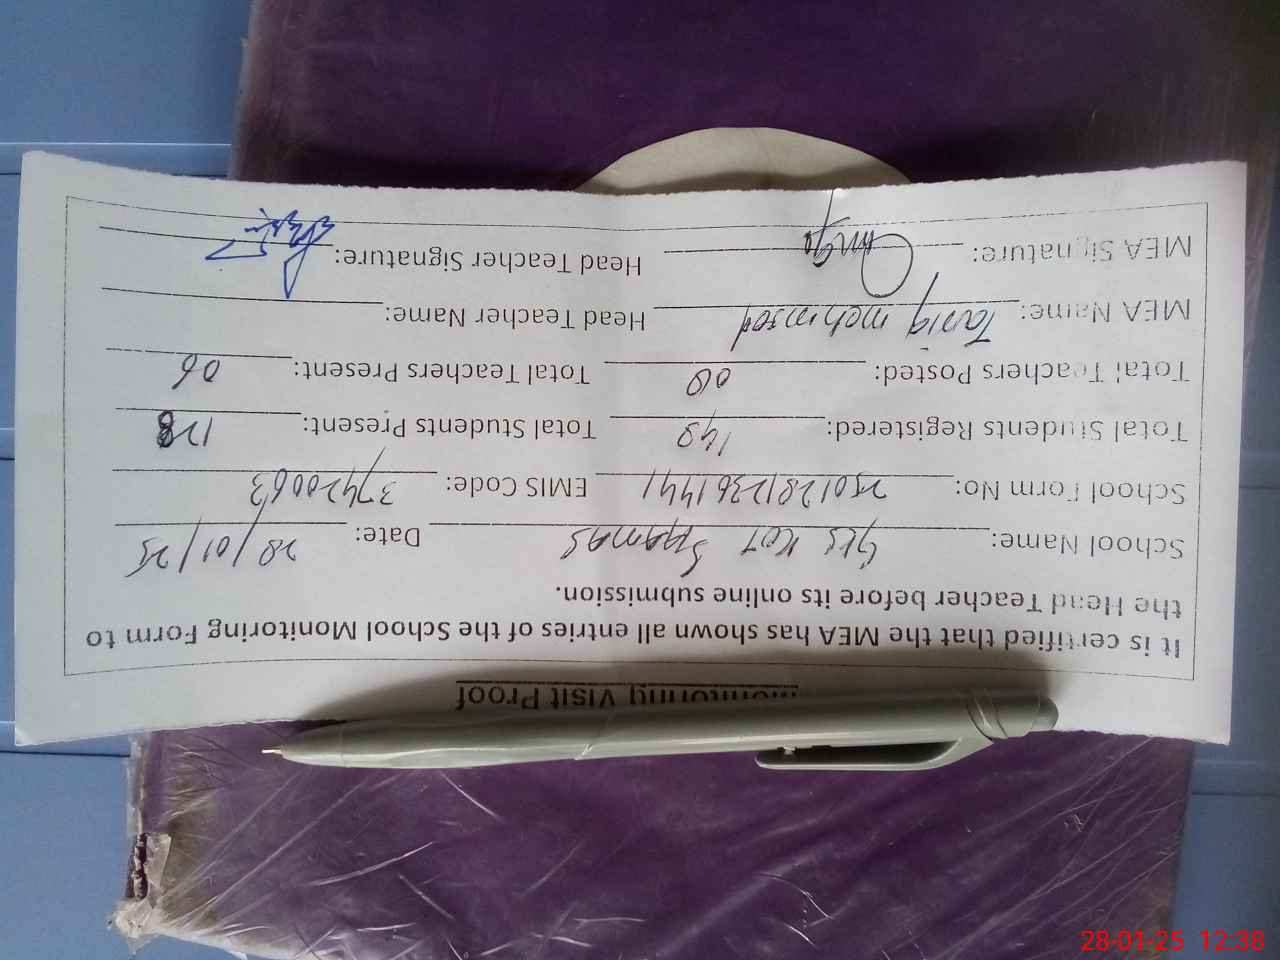 Monitoring Visit Proof
It is certified that the MEA has shown all entries of the School Monitoring Form to
the Head Teacher before its online submission.
School Name: GPS Kot Date: 28/01/25
School Form No: 25012812361441 EMIS Code: 37420063
Total Students Registered: 149 Total Students Present: 128
Total Teachers Posted: Total Teachers Present: 06
MEA Name: Tariq mehmood Head Teacher Name:
MEA Signature: Head Teacher Signature:
28-01-25 12:38